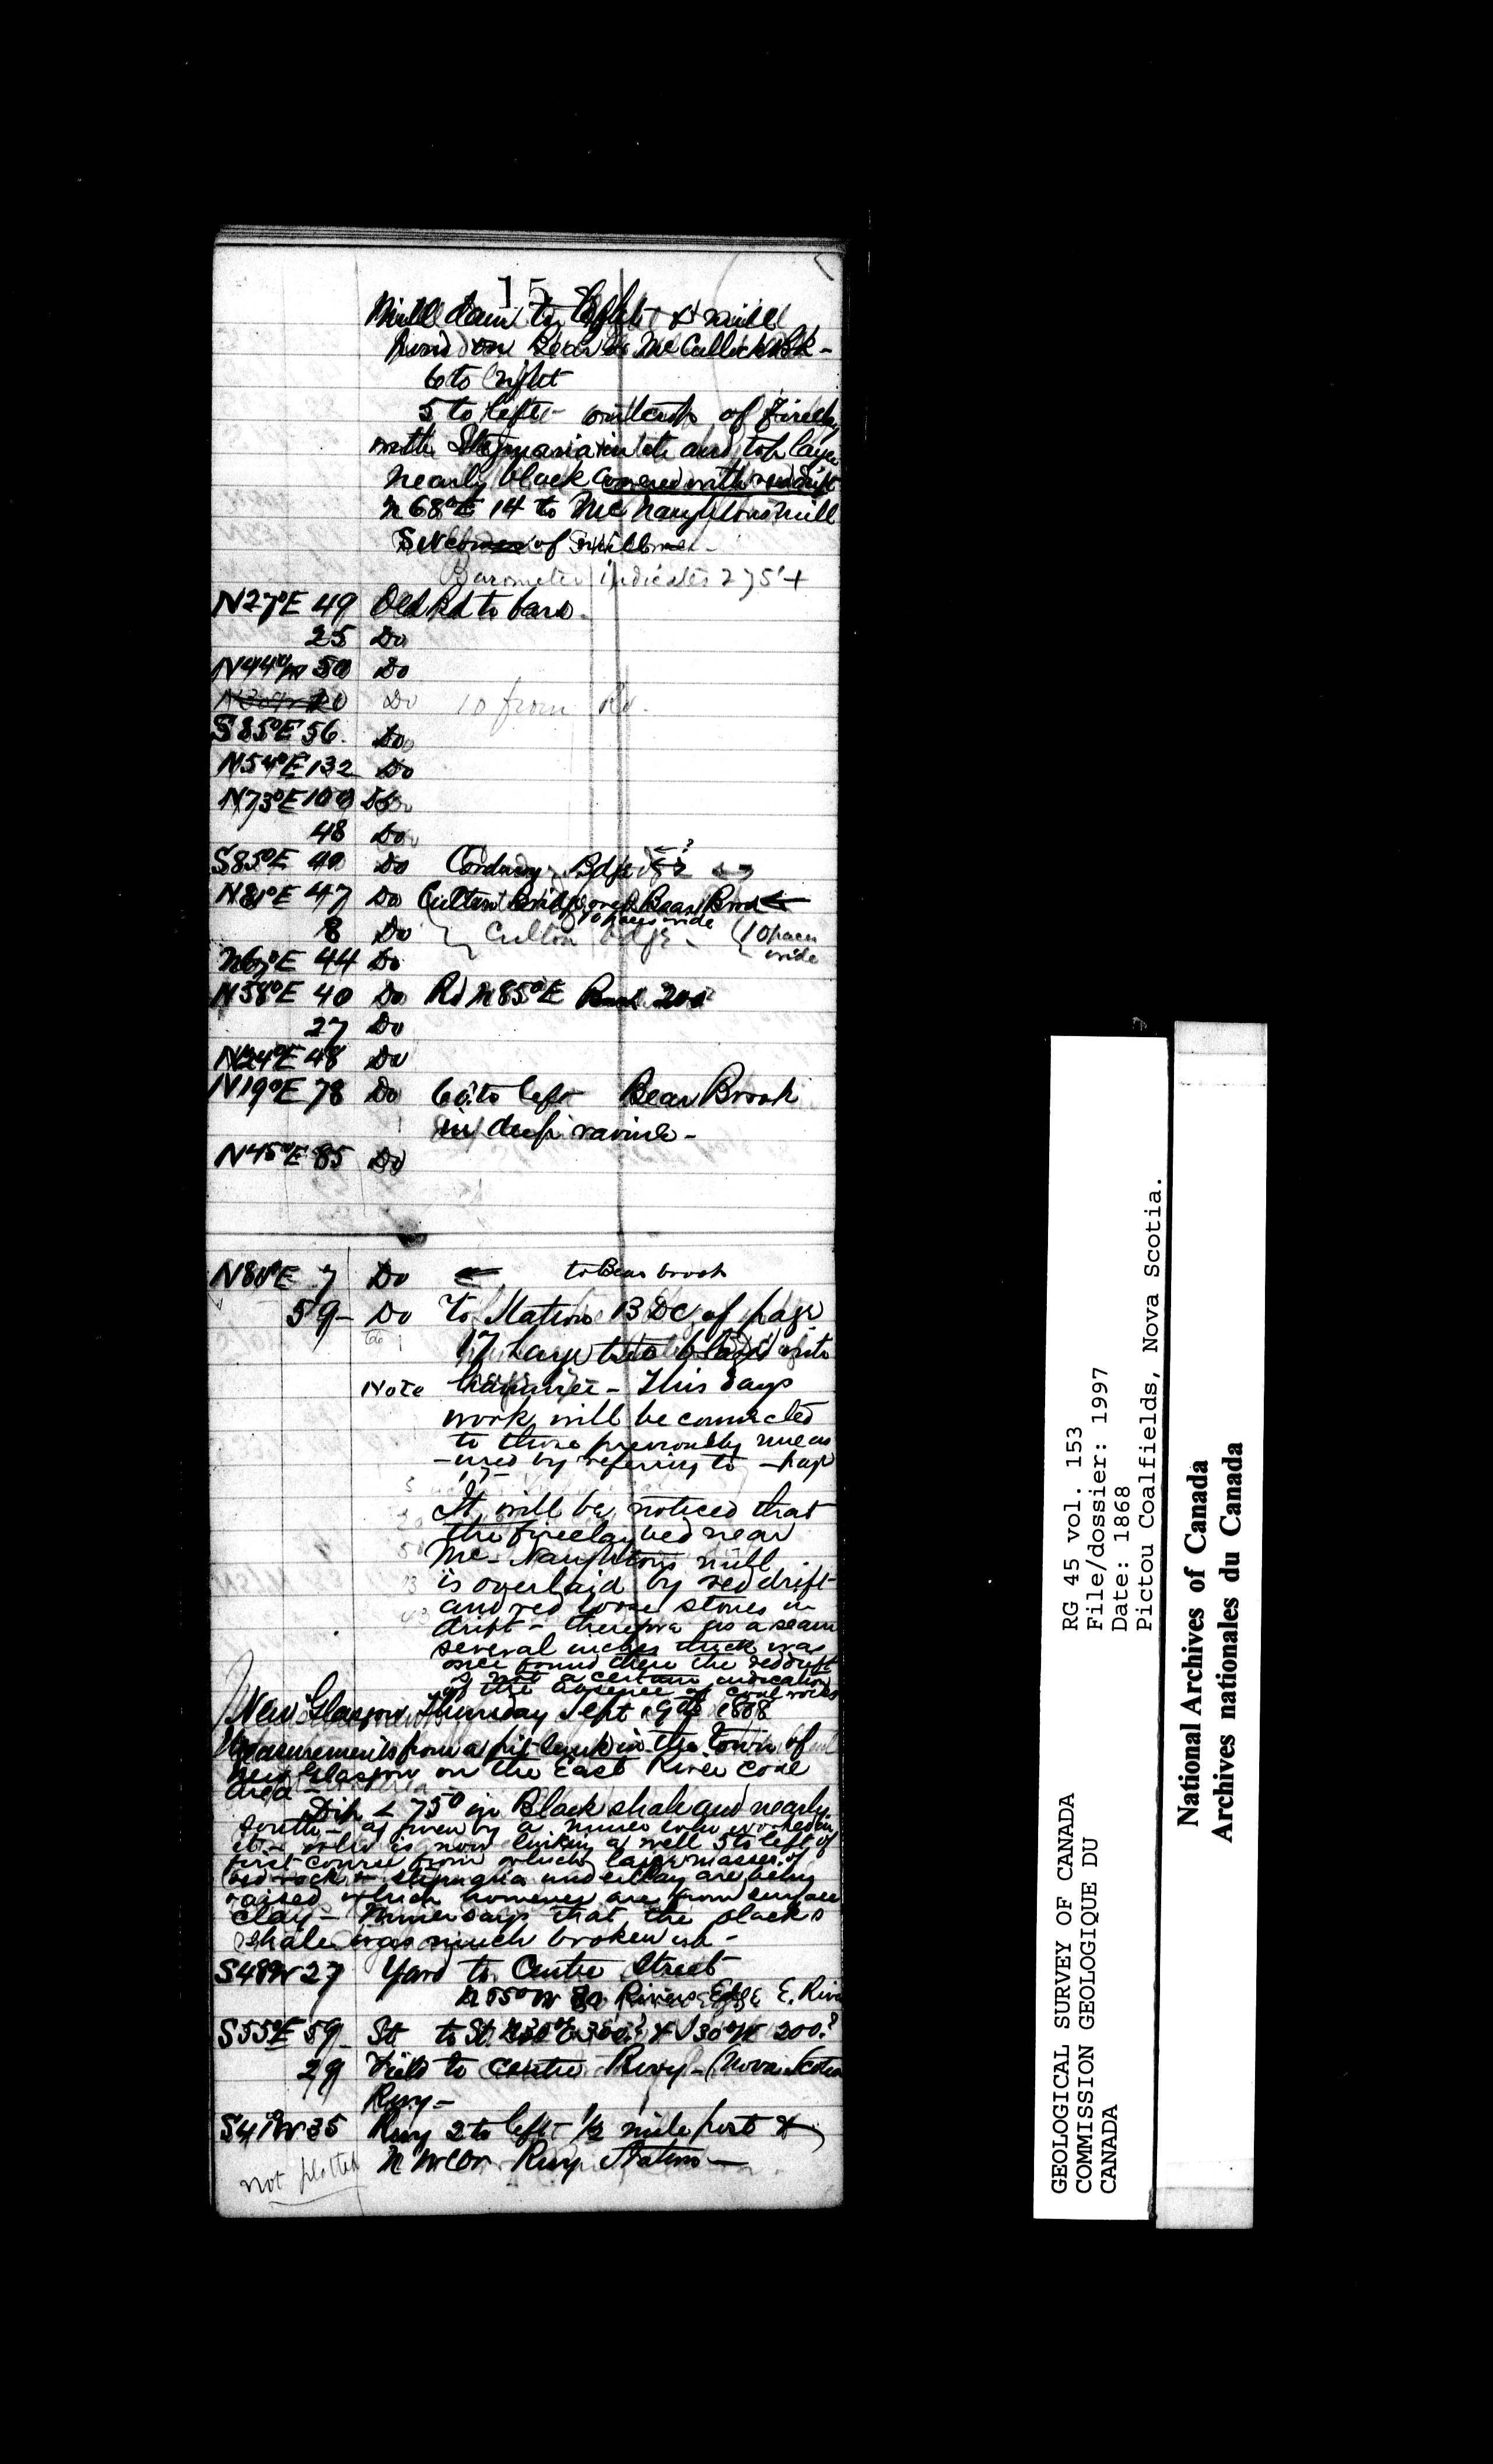 15
Mill dam to left & mill
pond on Bear or McCullock Bk -
6 to right
5 to left - outcrop of fireclay
with Stigmaria in it and top layer
nearly black covered with red drift
N 68° E 14 to McNaughtons mill
SW corner of mill
Barometer indicates 275' +
N27°E 49 Old Rd to bars
25 Do
N44° 50 Do
20 Do 10 from Rd.
S85°E 56. Do
N54°E 132 Do
N73°E 100 Do
48 Do
S85°E 40 Do Corduroy Bdge ?
N81°E 47 Do Bridge over Bear Brook ←
10 paces wide
8 Do Bdge - (10 paces
wide
N67°E 44 Do
N58°E 40 Do Rd N85°E 200
27 Do
N24°E 48 Do
N19°E 78 Do 60 to left Bear Brook
in deep ravine -
N45°E 85 Do
N80°E 7 Do ← to Bear brook
59 - Do To Station 13 DC of page
17 Large tree blazed with
Note hammer - This days
work will be connected
to those previously meas
-ured by referring to - page
17 -
It will be noticed that
the fireclay bed near
Mc-Naughtons mill
is overlaid by red drift
and red loose stones in
drift - therefore as a seam
several inches thick was
once found there the red drift
is not a certain indication
of the absence of coal rocks
New Glasgow Thursday Sept 19th 1868
Measurements from a pit sunk in the town of
New Glasgow on the East River coal
area -
Dip < 75° in Black shale and nearly
south - as given by a miner who worked in
it - who is now sinking a well 5 to left of
first course from which large masses of
red rock & stigmaria underclay are being
raised which however are from surface
clay - Miner says that the black
shale was much broken up -
S48W 27 Yard to Centre Street
N 55° W 80 Rivers Edge E. River
S55°E 59 St to St. N30°E 300? & S30°W 200?
29 Field to centre Rwy - (Nova Scotia
Rwy -
S41°W 35 Rwy 2 to left ½ mile post &
N W Cor Rwy Station -
not plotted
GEOLOGICAL SURVEY OF CANADA
COMMISSION GEOLOGIQUE DU
CANADA
RG 45 vol. 153
File/dossier: 1997
Date: 1868
Pictou Coalfields, Nova Scotia.
National Archives of Canada
Archives nationales du Canada